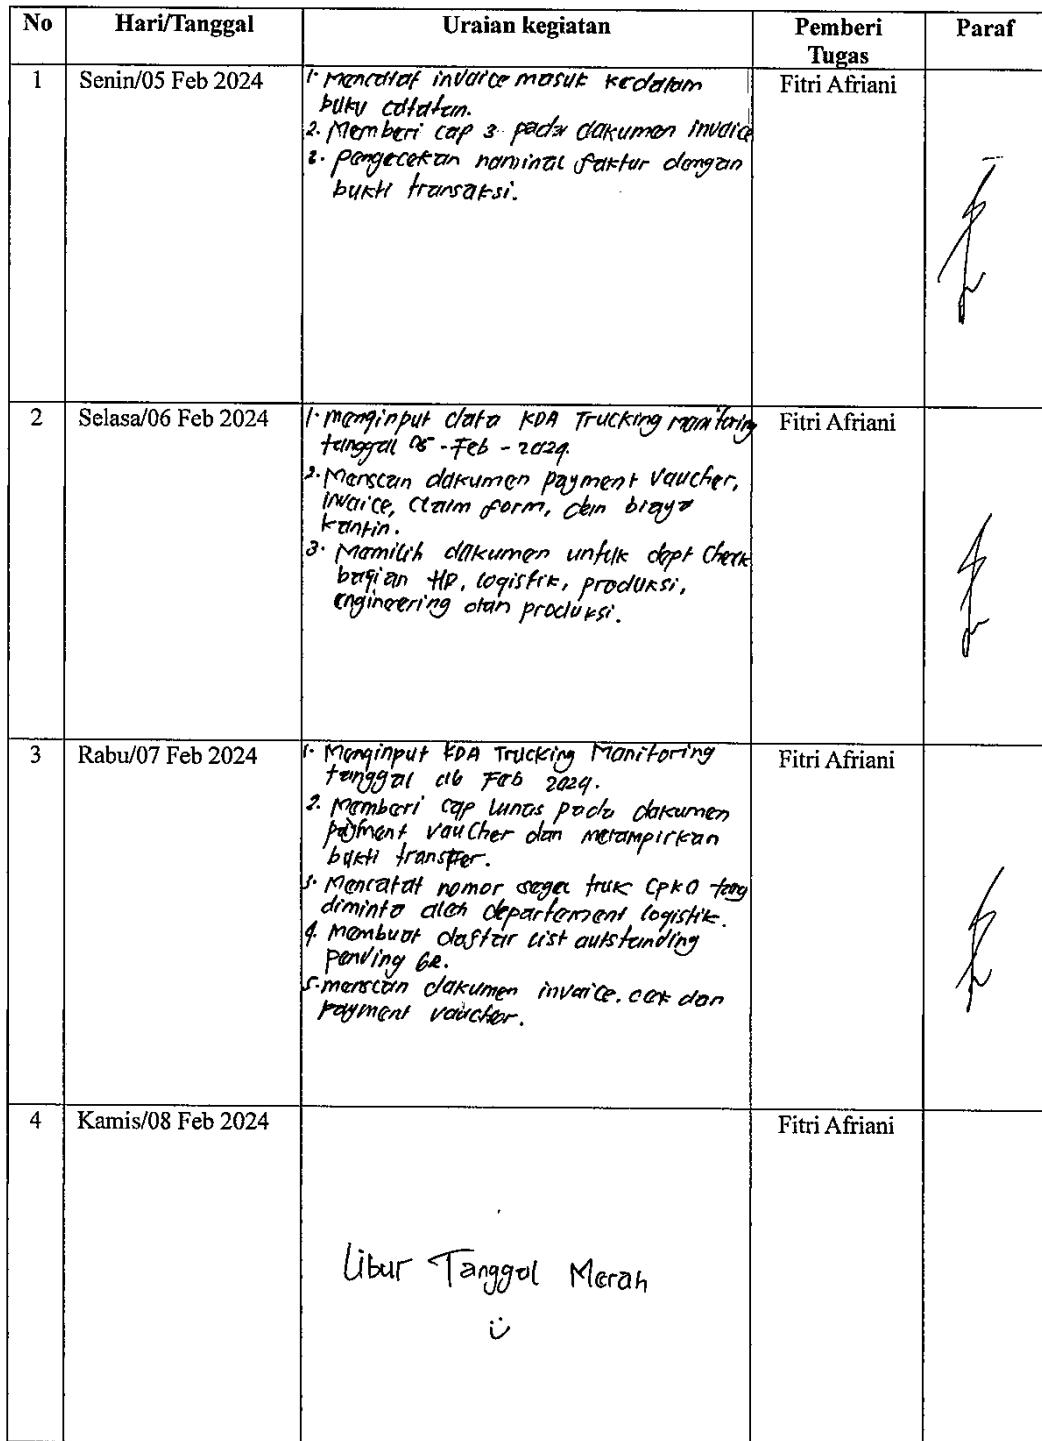 No Hari/Tanggal Uraian kegiatan Pemberi Tugas Paraf
1 Senin/05 Feb 2024 Fitri Afriani
1. Mencatat invoice masuk kedalam
buku catatan.
2. Memberi cap 3 pada dokumen invoice
2. pengecekan nominal faktur dengan
bukti transaksi.
2 Selasa/06 Feb 2024 Fitri Afriani
1. menginput data KDA Trucking monitoring
tanggal 05 - Feb - 2024.
2. Menscan dokumen payment Voucher,
invoice, claim form, dan biaya
kantin.
3. Memilih dokumen untuk dept Check
bagian HP, logistik, produksi,
engineering dan produksi.
3 Rabu/07 Feb 2024 Fitri Afriani
1. Menginput KDA Trucking Monitoring
tanggal 06 Feb 2024.
2. Memberi cap lunas pada dokumen
payment voucher dan melampirkan
bukti transfer.
3. Mencatat nomor segel truk CPKO yang
diminta oleh departement logistik.
4. Membuat daftar list outstanding
Pending GR.
5. menscan dokumen invoice. cek dan
Payment voucher.
4 Kamis/08 Feb 2024 Fitri Afriani
Libur Tanggal Merah